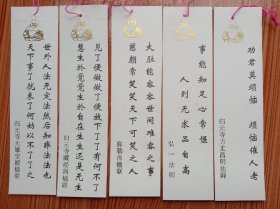 劝君莫烦恼　烦恼催人老
归元寺方丈昌明法師
事能知足心常惬
人到无求品自高
弘一法师
大肚能容容世间难容之事
慈颜常笑笑天下可笑之人
弥勒佛楹联
见了便做做了便放下了了有何不了
慧生於觉觉生於自在生生还是无生
归元寺藏经阁楹联
世外人法无定法然后知非法法也
天下事了犹未了何妨以不了了之
归元寺大雄宝殿楹联